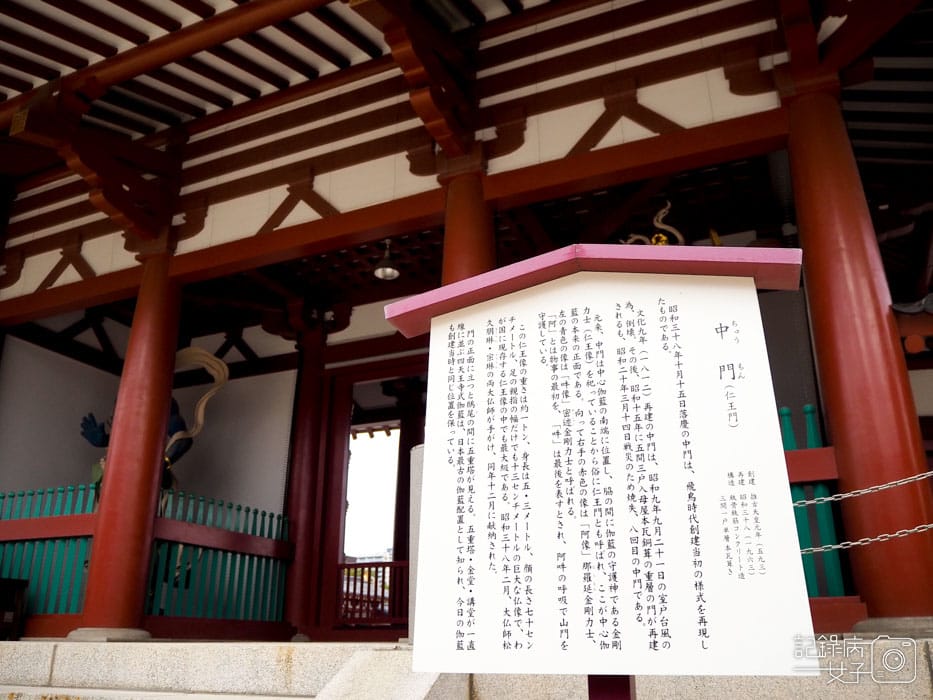 中門(仁王門)
ちゅう もん
創建 推古天皇元年(五九三)
再建 昭和三十八(一九六三)
構造 鉄骨鉄筋コンクリート造
三間一戸重層本瓦葺き
昭和三十八年十月十五日落慶の中門は、飛鳥時代創建当初の様式を再現し
たものである。
文化九年(一八一二)再建の中門は、昭和九年九月二十一日の室戸台風の
為、倒壊。その後、昭和十五年に五間三戸入母屋本瓦銅葺の重層の門が再建
されるも、昭和二十年三月十四日戦災のため焼失、八回目の中門である。
元来、中門は中心伽藍の南端に位置し、脇の間に伽藍の守護神である金剛
力士(仁王像)を祀っていることから俗に仁王門とも呼ばれ、ここが中心伽
藍の本来の正面である。向って右手の赤色の像は「阿像」那羅延金剛力士、
左の青色の像は「吽像」密迹金剛力士と呼ばれる。
「阿」とは物事の最初を、「吽」は最後を表すとされ、阿吽の呼吸で山門を
守護している。
この仁王像の重さは約一トン、身長は五・三メートル、顔の長さ七十セン
チメートル、足の親指の幅だけでも十三センチメートルの巨大な仏像で、わ
が国に現存する仁王像の中でも最大級である。昭和三十八年二月、大仏師松
久朋琳・宗琳の両大仏師が手がけ、同年十二月に献納された。
門の正面に立つと鴟尾の間に五重塔が見える。五重塔・金堂・講堂が一直
線に並ぶ四天王寺式伽藍は、日本最古の伽藍配置として知られ、今日の伽藍
も創建当時と同じ位置を保っている。
記錄病
女子